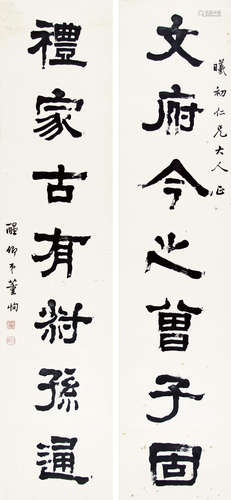 曦初仁兄大人正
文府今之曾子固
禮家古有叔孫通
醒卿弟董恂